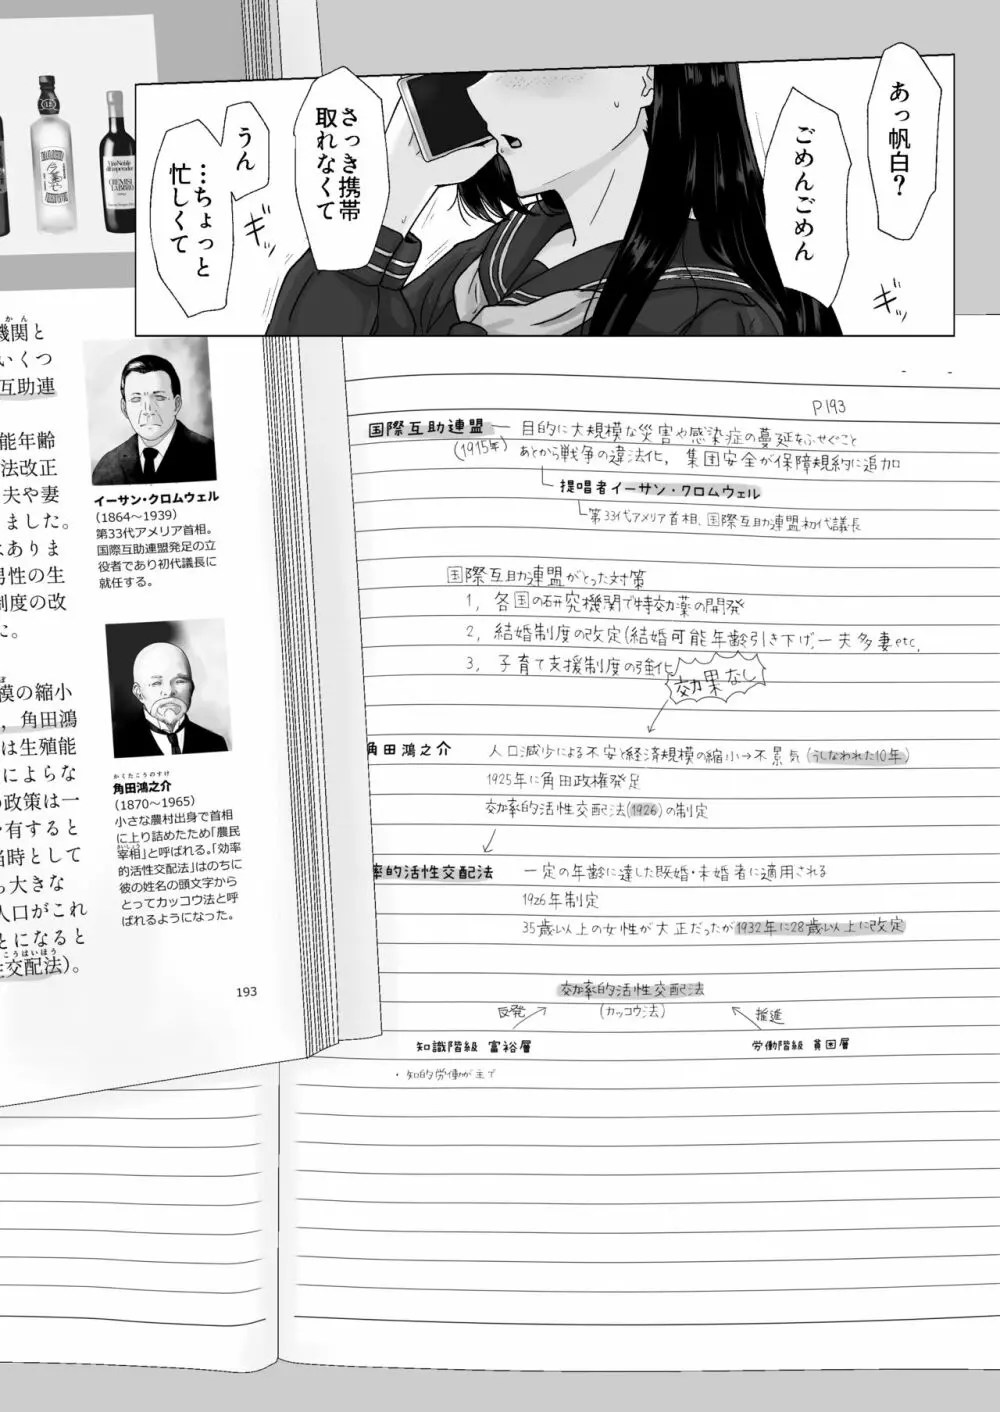 あっ帆白?
ごめんごめん
さっき携帯
取れなくて
うん
…ちょっと
忙しくて
ギッ
ギッ
機関と
かん
いくつ
互助連
能年齢
法改正
夫や妻
ました。
はありま
男性の生
制度の改
た。
模の縮小
、角田鴻
は生殖能
によらな
の政策は一
有すると
当時として
ら大きな
人口がこれ
とになると
こうはいほう
性交配法)。
イーサン・クロムウェル
(1864〜1939)
第33代アメリア首相。
国際互助連盟発足の立
役者であり初代議長に
就任する。
かくたこうのすけ
角田鴻之介
(1870〜1965)
小さな農村出身で首相
に上り詰めたため「農民
さいしょう
宰相」と呼ばれる。「効率
的活性交配法」はのちに
彼の姓名の頭文字から
とってカッコウ法と呼
ばれるようになった。
193
P193
国際互助連盟 ― 目的に大規模な災害や感染症の蔓延をふせぐこと
(1915年) あとから戦争の違法化, 集団安全が保障規約に追加
提唱者イーサン・クロムウェル
第33代アメリア首相、国際互助連盟初代議長
国際互助連盟がとった対策
1, 各国の研究機関で特効薬の開発
2, 結婚制度の改定(結婚可能年齢引き下げ,一夫多妻etc,
3, 子育て支援制度の強化
効果なし
角田鴻之介 人口減少による不安と経済規模の縮小→不景気(うしなわれた10年)
1925年に角田政権発足
効率的活性交配法(1926)の制定
率的活性交配法 ― 一定の年齢に達した既婚・未婚者に適用される
1926年制定
35歳以上の女性が大正だったが1932年に28歳以上に改定
効率的活性交配法
(カッコウ法)
反発
推進
知識階級 富裕層
労働階級 貧困層
・知的労働が主で